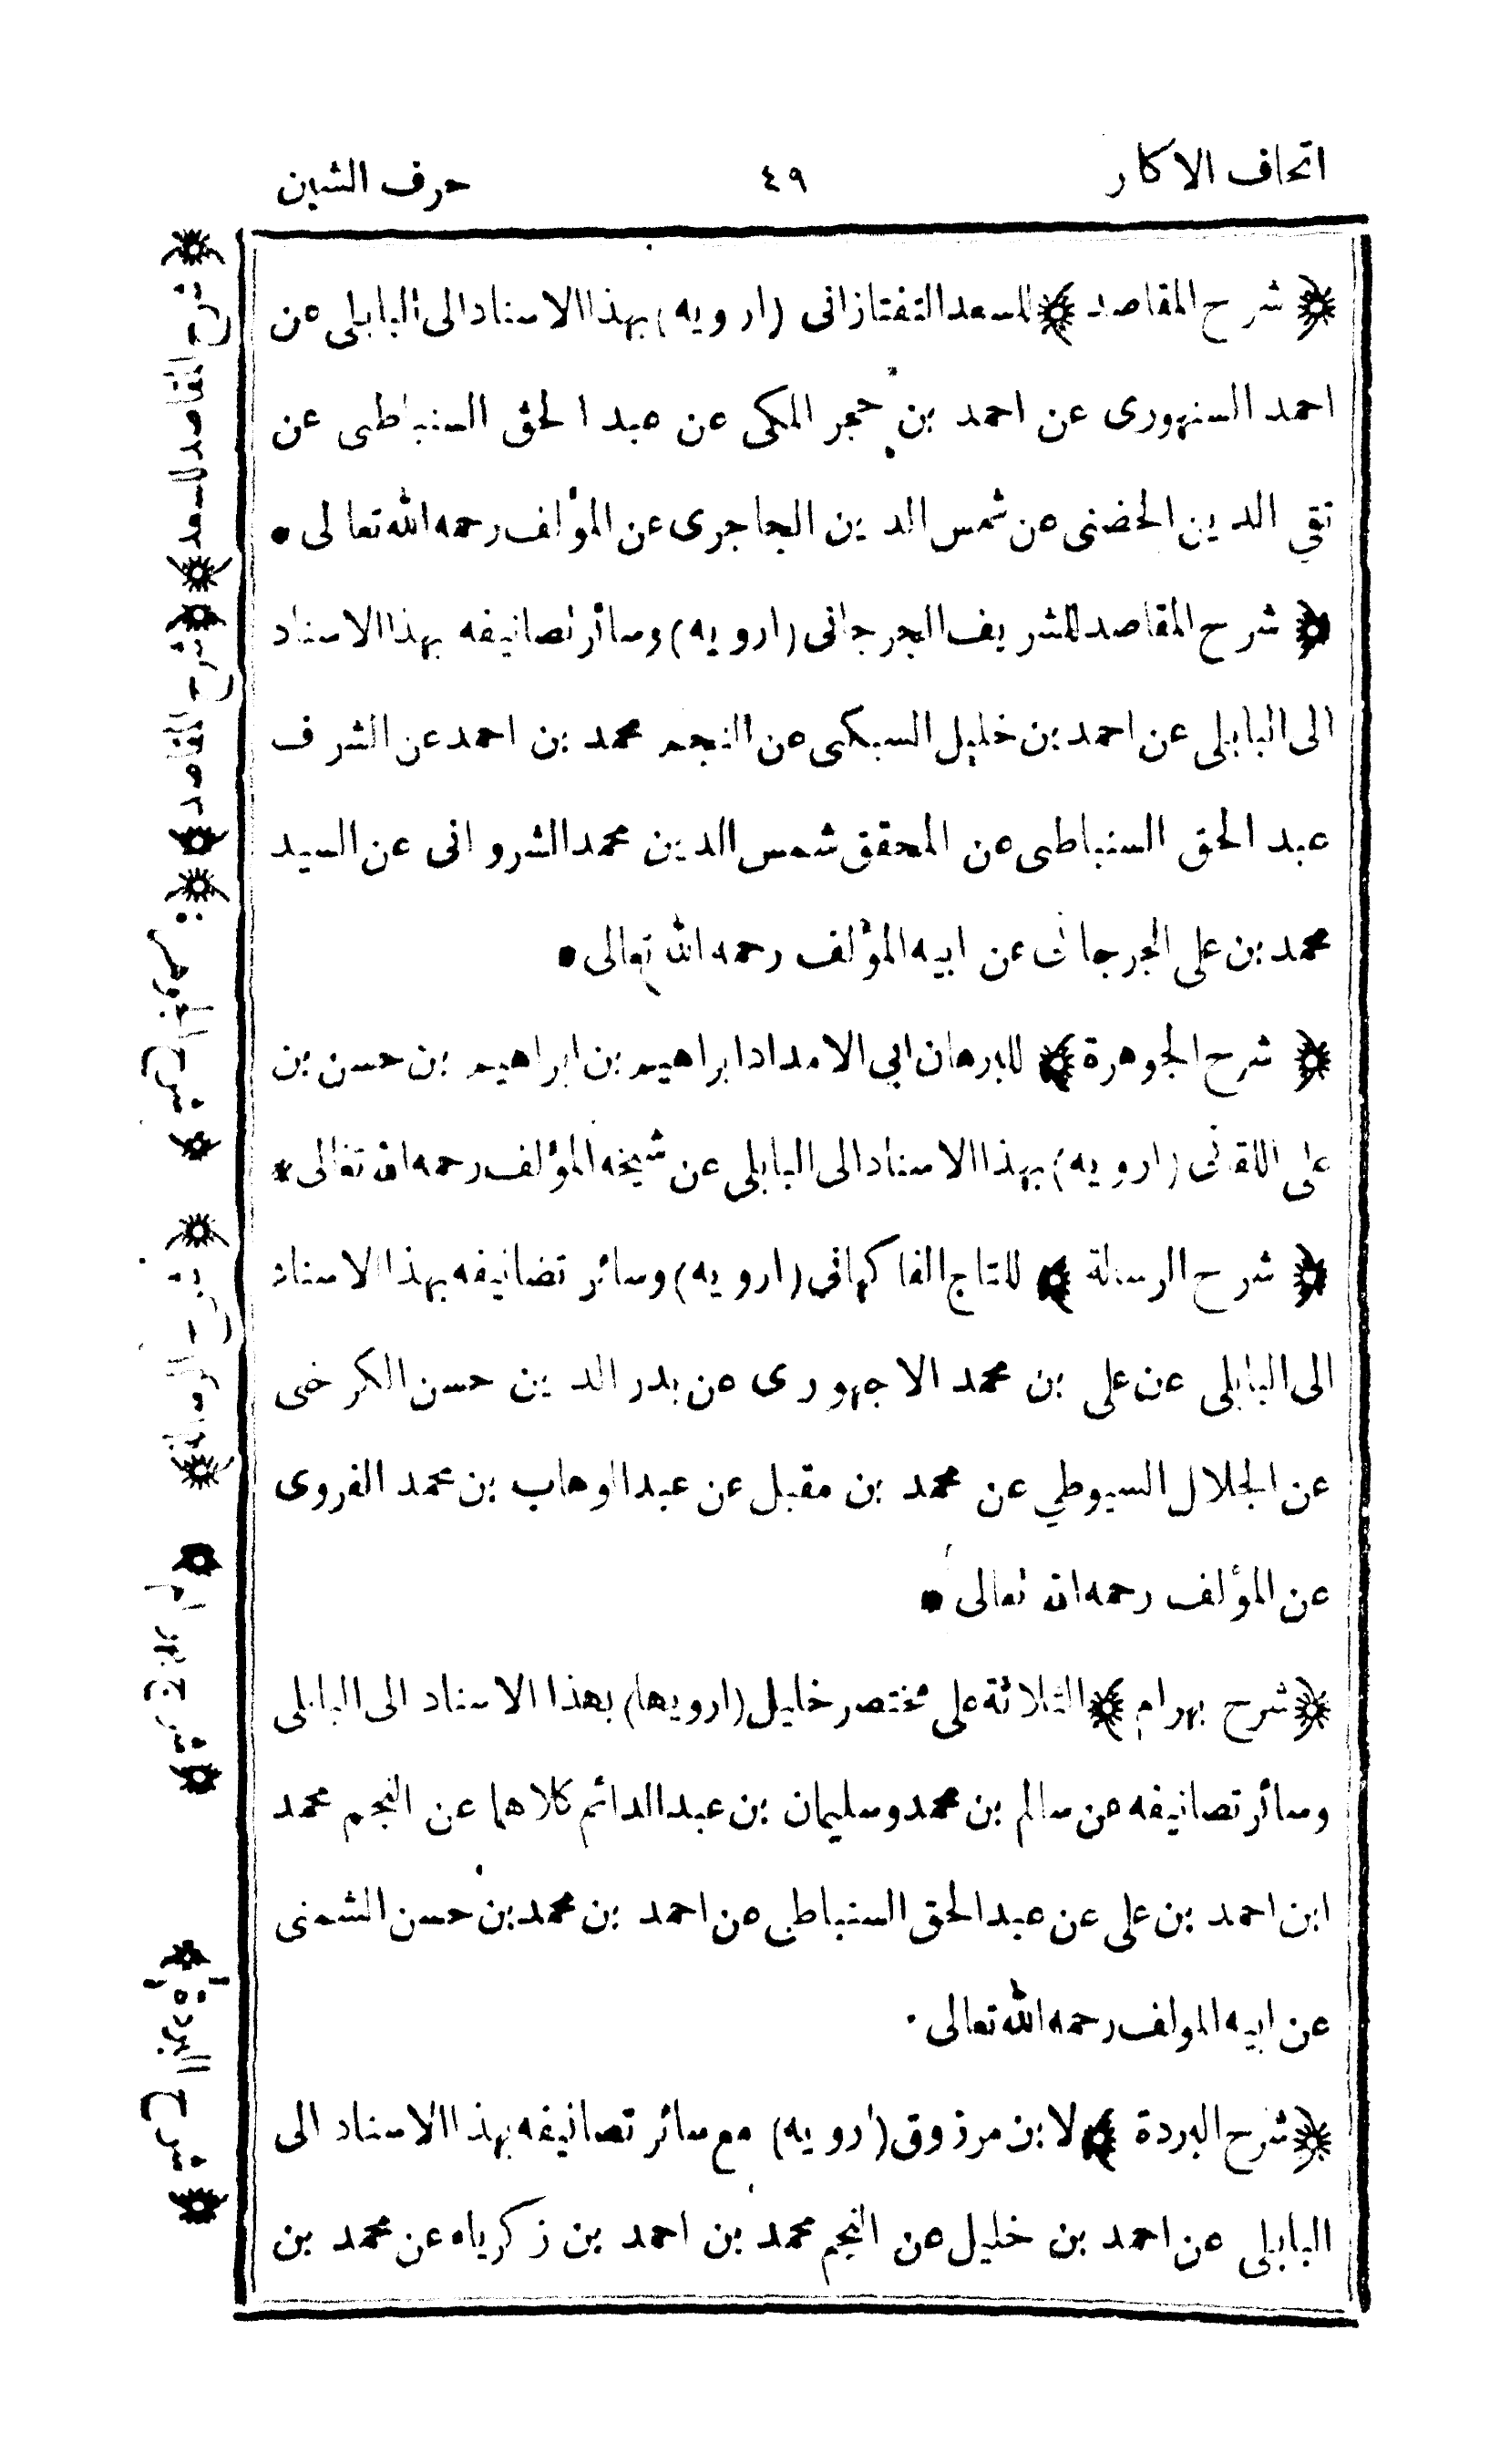 اتحاف الاكار
٤٩
حرف الشين
﴿ شرح المقاصد ﴾ للسعد التفتازانى (ارويه) بهذا الاسناد الى البابلى عن
احمد السنهورى عن احمد بن حجر المكى عن عبد الحق السنباطى عن
تقي الدين الحضنى عن شمس الدين الجاجرى عن المؤلف رحمه الله تعالى •
﴿ شرح المقاصد للشريف الجرجانى (ارويه) وسائر تصانيفه بهذا الاسناد
الى البابلى عن احمد بن خليل السبكى عن النجم محمد بن احمد عن الشرف
عبد الحق السنباطى عن المحقق شمس الدين محمد الشروانى عن السيد
محمد بن على الجرجانى عن ابيه المؤلف رحمه الله تعالى •
﴿ شرح الجوهرة ﴾ للبرهان ابي الامداد ابراهيم بن ابراهيم بن حسن بن
على اللقانى (ارويه) بهذا الاسناد الى البابلى عن شيخه المؤلف رحمه الله تعالى *
﴿ شرح الرسالة ﴾ للتاج الفاكهانى (ارويه) وسائر تضانيفه بهذا الاسناد
الى البابلى عن على بن محمد الاجهورى عن بدر الدين حسن الكرخى
عن الجلال السيوطي عن محمد بن مقبل عن عبد الوهاب بن محمد الفروى
عن المؤلف رحمه الله تعالى •
﴿ شرح بهرام ﴾ الثلاثة على مختصر خليل (ارويها) بهذا الاسناد الى البابلى
وسائر تصانيفه عن سالم بن محمد وسليمان بن عبد الدائم كلاهما عن النجم محمد
ابن احمد بن على عن عبد الحق السنباطى عن احمد بن محمد بن حسن الشمنى
عن ابيه المولف رحمه الله تعالى ·
﴿ شرح البردة ﴾ لابن مرزوق (ارويه) مع سائر تصانيفه بهذا الاسناد الى
البابلى عن احمد بن خليل عن النجم محمد بن احمد بن زكرياه عن محمد بن
﴿ شرح المقاصد للسعد ﴾
﴿ شرح المقاصد ﴾
﴿ شرح الجوهرة ﴾
﴿ شرح الرسالة ﴾
﴿ شرح بهرام ﴾
﴿ شرح البردة ﴾